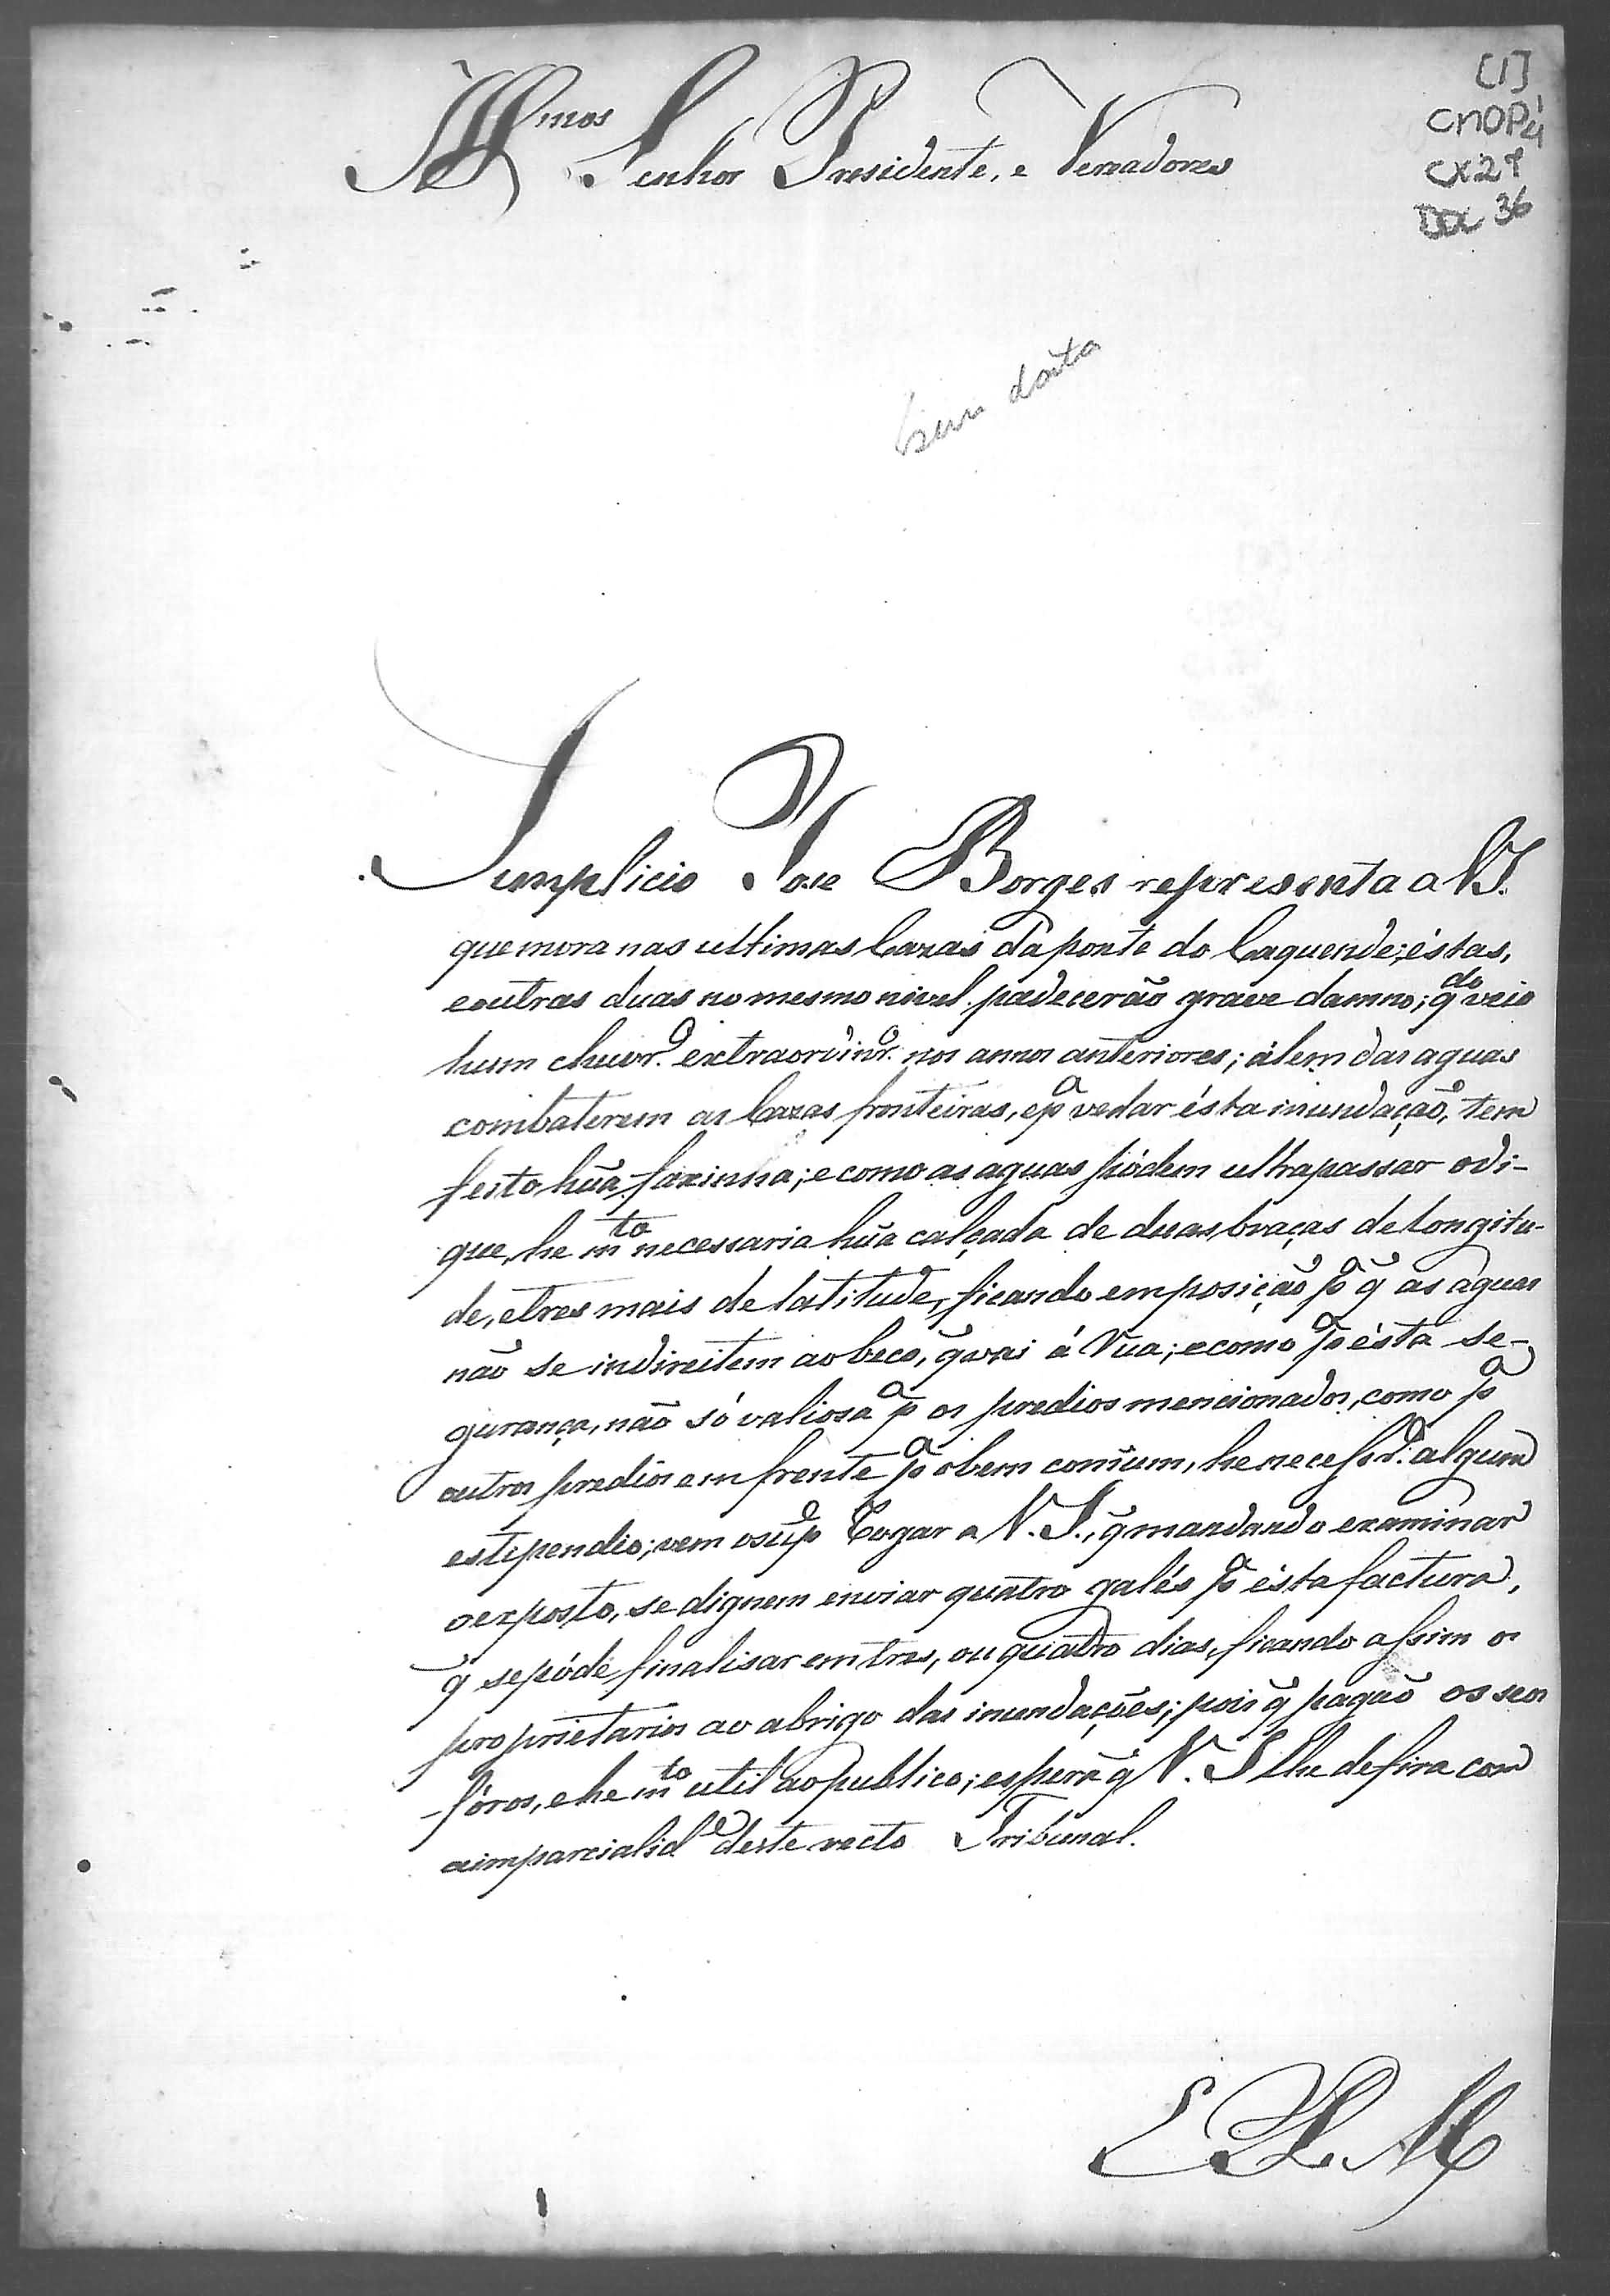 [1]
CMOP 1/4
CX 27
DOC 36
Ill.mos Senhor Presidente, e Vereadores
sem data
Simplicio Jose Borges representa a V.S.
que mora nas ultimas Cazas da ponte do Caquende; éstas,
e outras duas no mesmo nivel padecerão grave damno; q.do veio
hum chuvr.o extraordinr.o nos annos anteriores; àlem das aguas
combaterem as Cazas fronteiras, e p.a vedar ésta inundação, tem
feito hũa faxinha; e como as aguas pódem ultrapassar o di-
que, he m.to necessaria hũa calçada de duas braças de longitu-
de, e tres mais de latitude, ficando em posição p.a q̃ as aguas
não se indireitem ao beco, q̃ vai á Rua; e como p.a ésta se-
gurança, não só valiosa p.a os predios mencionados, como p.a
outros predios em frente p.a o bem comũm, he necessr.o algum
estipendio; vem o sup.e Rogar a V.S., q̃ mandando examinar
o exposto, se dignem enviar quatro galés p.a ésta factura,
q̃ se póde finalisar em tres, ou quatro dias, ficando assim os
proprietarios ao abrigo das inundações; pois q̃ pagão os seos
fóros, e he m.to util ao publico; espera q̃ V.S. lhe defira com
a imparcialid.e deste recto Tribunal.
E R M